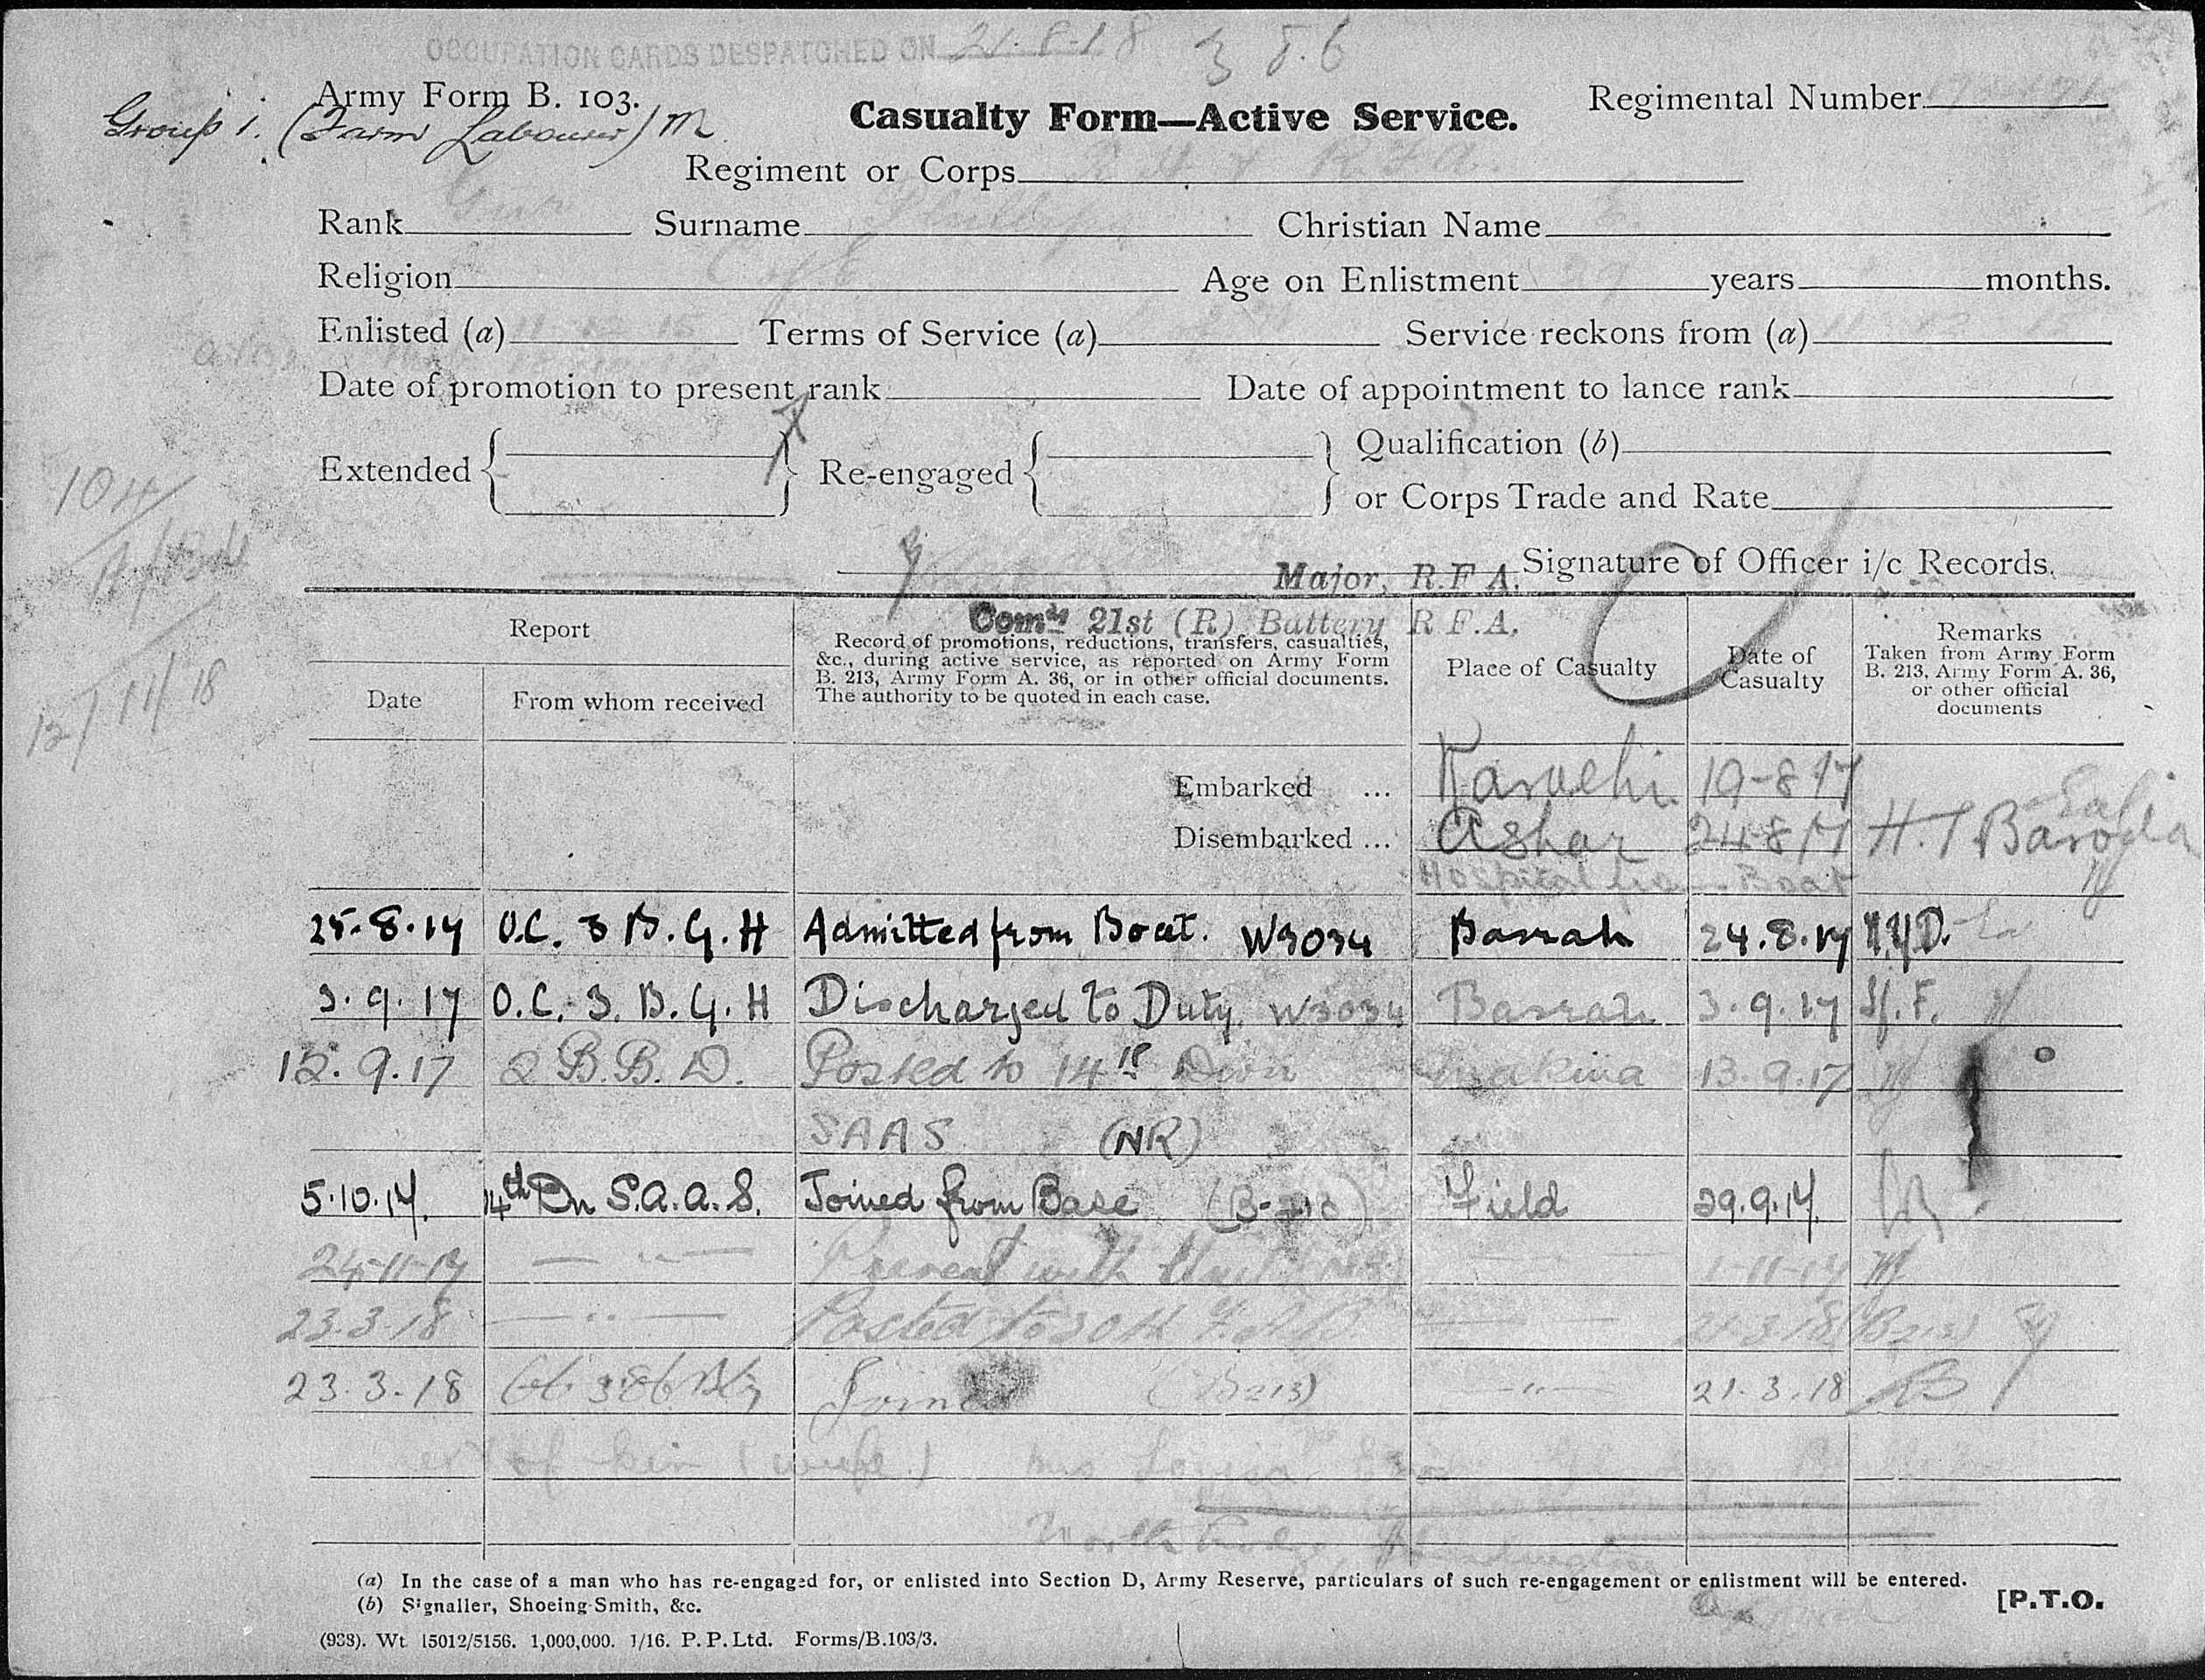 OCCUPATION CARDS DESPATCHED ON 21-8-18 3 5.6
Army Form B. 103.
Group 1. (Farm Labourer) M
Casualty Form—Active Service.
Regimental Number
Regiment or Corps R.F.A.
Rank Gunr Surname Christian Name E.
Religion C of E Age on Enlistment 29 years months.
Enlisted (a) 11 12 15 Terms of Service (a) Service reckons from (a) 11
Date of promotion to present rank Date of appointment to lance rank
Extended Re-engaged Qualification (b)
or Corps Trade and Rate
104
12/11/18
Major, R.F.A. Signature of Officer i/c Records.
Comdg 21st (R) Battery R.F.A.
Report
Date From whom received
Record of promotions, reductions, transfers, casualties, &c., during active service, as reported on Army Form B. 213, Army Form A. 36, or in other official documents. The authority to be quoted in each case.
Place of Casualty
Date of Casualty
Remarks Taken from Army Form B. 213, Army Form A. 36, or other official documents
Embarked ... Karachi 19-8-17
Disembarked ... Ashar 24-8-17 H.T Baroda
Hospital from Boat
25.8.17 O.C. 3 B.G.H Admitted from Boat. W3034 Basrah 24.8.17 N.Y.D.
3.9.17 O.C. 3. B.G.H Discharged to Duty. W3034 Basrah 3.9.17 S.F.
12.9.17 2 B.B.D. Posted to 14th Divn Makina 13.9.17
SAAS (NR)
5.10.17. 14th Dn S.A.A.S. Joined from Base (B-213) Field 29.9.17.
24-11-17 — " — Present with Unit — " — 1-11-17
23.3.18 — " — Posted to 304 F.A.B. — " — 21.3.18 (B213)
23.3.18 Joined (B213) — " — 21.3.18
next of kin (wife) Mrs Louisa
North Lodge
(a) In the case of a man who has re-engaged for, or enlisted into Section D, Army Reserve, particulars of such re-engagement or enlistment will be entered.
(b) Signaller, Shoeing-Smith, &c.
[P.T.O.
(938). Wt 15012/5156. 1,000,000. 1/16. P.P.Ltd. Forms/B.103/3.